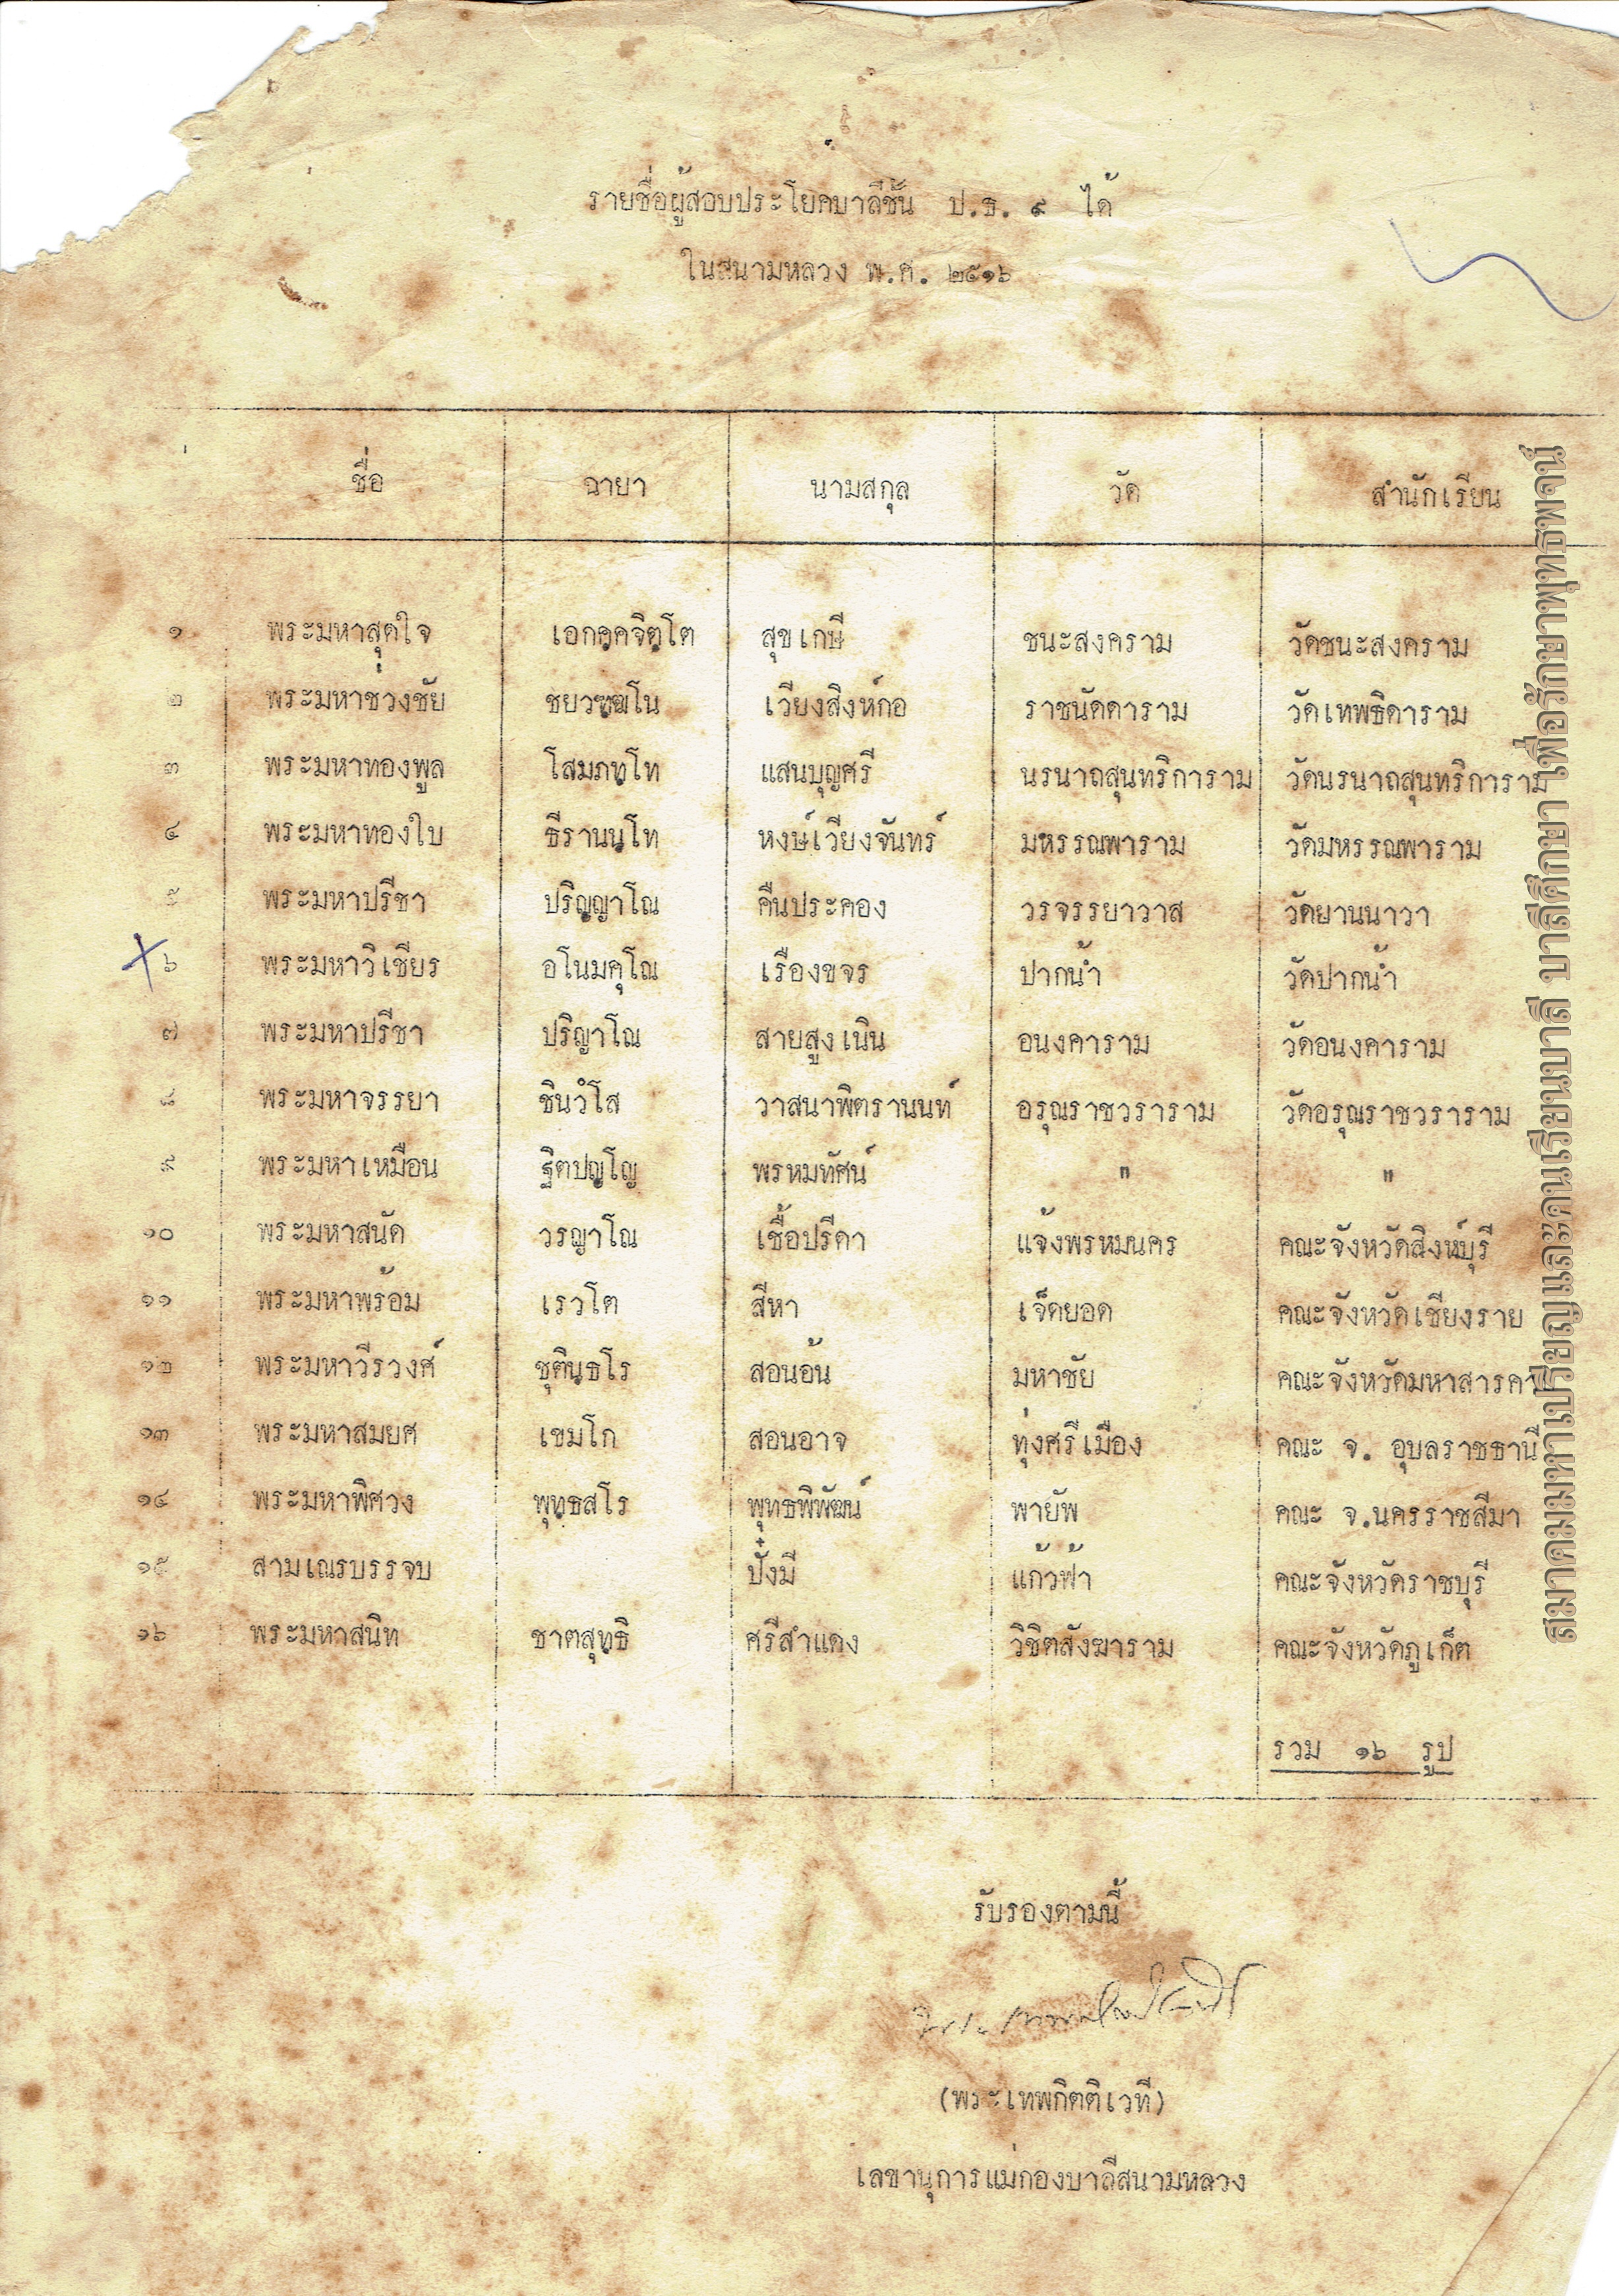 รายชื่อผู้สอบประโยคบาลีชั้น ป.ธ. ๙ ได้
ในสนามหลวง พ.ศ. ๒๕๑๖
ชื่อ ฉายา นามสกุล วัด สำนักเรียน
๑ พระมหาสุดใจ เอกคฺคจิตฺโต สุขเกษี ชนะสงคราม วัดชนะสงคราม
๒ พระมหาช่วงชัย ชยวฑฺฒโน เวียงสิงห์กอ ราชนัดดาราม วัดเทพธิดาราม
๓ พระมหาทองพูล โสมภทฺโท แสนบุญศรี นรนาถสุนทริการาม วัดนรนาถสุนทริการาม
๔ พระมหาทองใบ ธีรานนฺโท หงษ์เวียงจันทร์ มหรรณพาราม วัดมหรรณพาราม
๕ พระมหาปรีชา ปริญฺญาโณ คืนประคอง วรจรรยาวาส วัดยานนาวา
๖ พระมหาวิเชียร อโนมคุโณ เรืองขจร ปากน้ำ วัดปากน้ำ
๗ พระมหาปรีชา ปริญาโณ สายสูงเนิน อนงคาราม วัดอนงคาราม
๘ พระมหาจรรยา ชินวํโส วาสนาพิตรานนท์ อรุณราชวราราม วัดอรุณราชวราราม
๙ พระมหาเหมือน ฐิตปญฺโญ พรหมทัศน์ " "
๑๐ พระมหาสนัด วรญาโณ เชื้อปรีดา แจ้งพรหมนคร คณะจังหวัดสิงห์บุรี
๑๑ พระมหาพร้อม เรวโต สีหา เจ็ดยอด คณะจังหวัดเชียงราย
๑๒ พระมหาวีรวงศ์ ชุตินฺธโร สอนอ้น มหาชัย คณะจังหวัดมหาสารคา
๑๓ พระมหาสมยศ เขมโก สอนอาจ ทุ่งศรีเมือง คณะ จ. อุบลราชธานี
๑๔ พระมหาพิศวง พุทฺธสโร พุทธพิพัฒน์ พายัพ คณะ จ.นครราชสีมา
๑๕ สามเณรบรรจบ ปั๋งมี แก้วฟ้า คณะจังหวัดราชบุรี
๑๖ พระมหาสนิท ชาตสุทฺธิ ศรีสำแดง วิชิตสังฆาราม คณะจังหวัดภูเก็ต
รวม ๑๖ รูป
รับรองตามนี้
(พระเทพกิตติเวที)
เลขานุการแม่กองบาลีสนามหลวง
สมาคมมหาเปรียญและคนเรียนบาลี บาลีศึกษา เพื่อรักษาพุทธพจน์